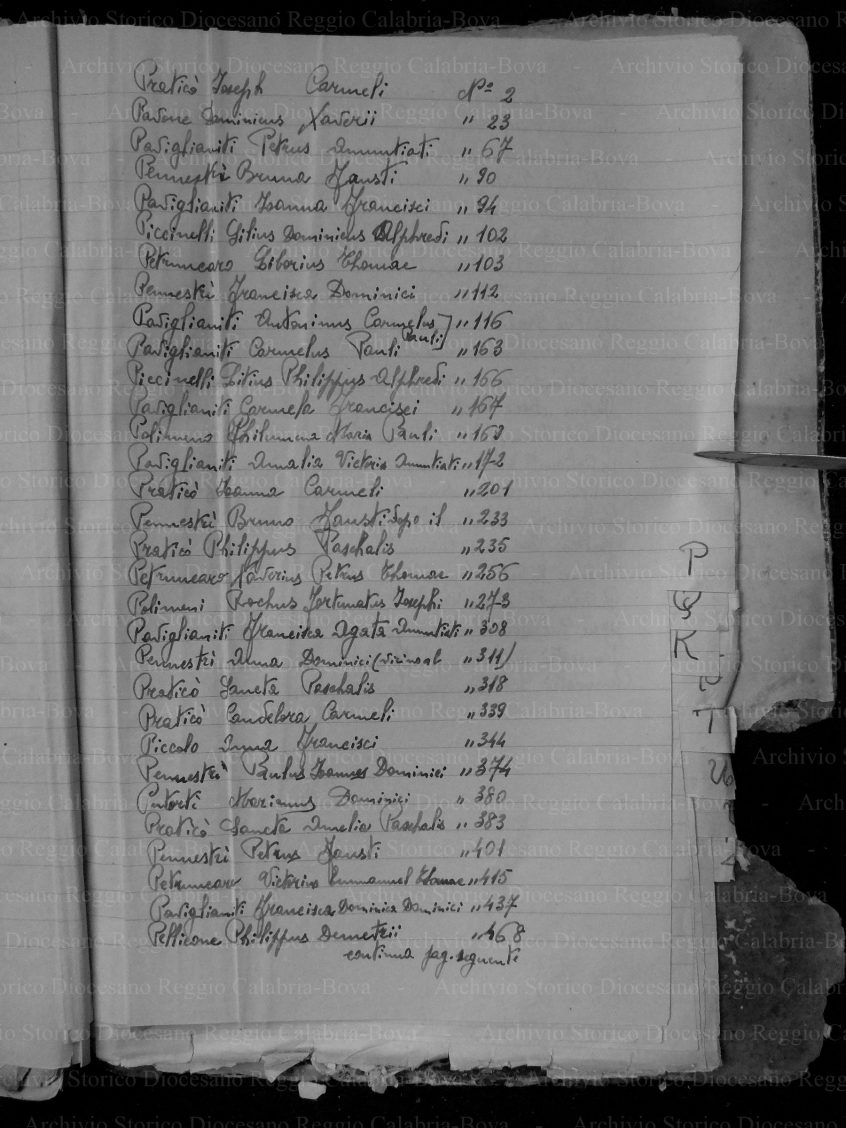 Praticò Joseph Carmeli Nº 2
Pavone Dominicus Xaverii " 23
Paviglianiti Petrus Annuntiati " 67
Pennestrì Bruna Fausti " 90
Paviglianiti Joanna Francisci " 94
Piccinelli Litius Dominicus Alphredi " 102
Petruncaro Liborius Thomae " 103
Pennestrì Francisca Dominici " 112
Paviglianiti Antoninus Carmelus " 116
Pauli
Paviglianiti Carmelus Pauli " 163
Piccinelli Litius Philippus Alphredi " 166
Paviglianiti Carmela Francisci " 167
Polimeno Philumena Maria Pauli " 169
Paviglianiti Amalia Victoria Annuntiati " 172
Praticò Joanna Carmeli " 201
Pennestrì Bruno Fausti dopo il " 233
Praticò Philippus Paschalis " 235
Petruncaro Xaverius Petrus Thomae " 256
Polimeni Rochus Fortunatus Josephi " 273
Paviglianiti Francisca Agata Annuntiati " 308
Pennestrì Anna Dominici (vicino al " 311)
Praticò Sancta Paschalis " 318
Praticò Candelora Carmeli " 339
Piccolo Anna Francisci " 344
Pennestrì Paulus Joannes Dominici " 374
Marianus Dominici " 380
Praticò Sancta Amelia Paschalis " 383
Pennestrì Petrus Fausti " 401
Petruncaro Victorius Emmanuel Thomae " 415
Paviglianiti Francisca Dominica Dominici " 437
Pellicone Philippus Demetrii " 468
continua pag. seguente
P
Q
R
T
U
Z
Archivio Storico Diocesano Reggio Calabria-Bova